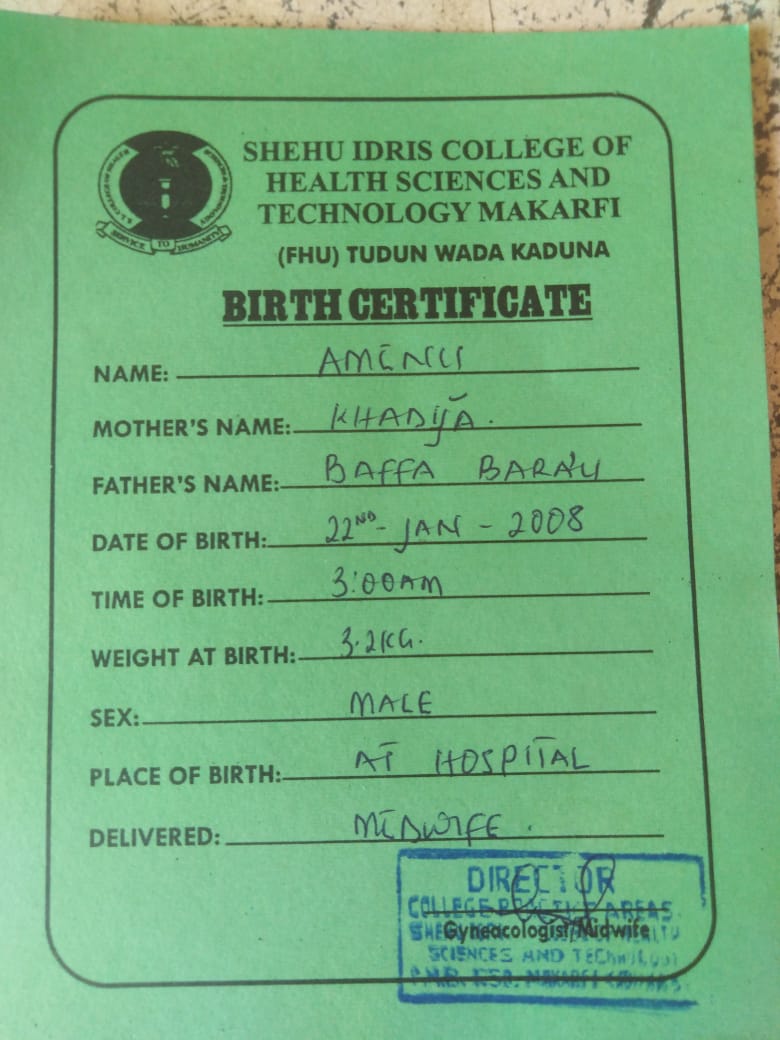 SHEHU IDRIS COLLEGE OF
HEALTH SCIENCES AND
TECHNOLOGY MAKARFI
(FHU) TUDUN WADA KADUNA
SERVICE TO HUMANITY
BIRTH CERTIFICATE
NAME: AMINU
MOTHER'S NAME: KHADIJA.
FATHER'S NAME: BAFFA BARA'U
DATE OF BIRTH: 22ND - JAN - 2008
TIME OF BIRTH: 3:00AM
WEIGHT AT BIRTH: 3.2KG.
SEX: MALE
PLACE OF BIRTH: AT HOSPITAL
DELIVERED: MIDWIFE.
DIRECTOR
COLLEGE PRACTICE AREAS
Gyneacologist/Midwife
SCIENCES AND TECHNOLOGY
MAKARFI